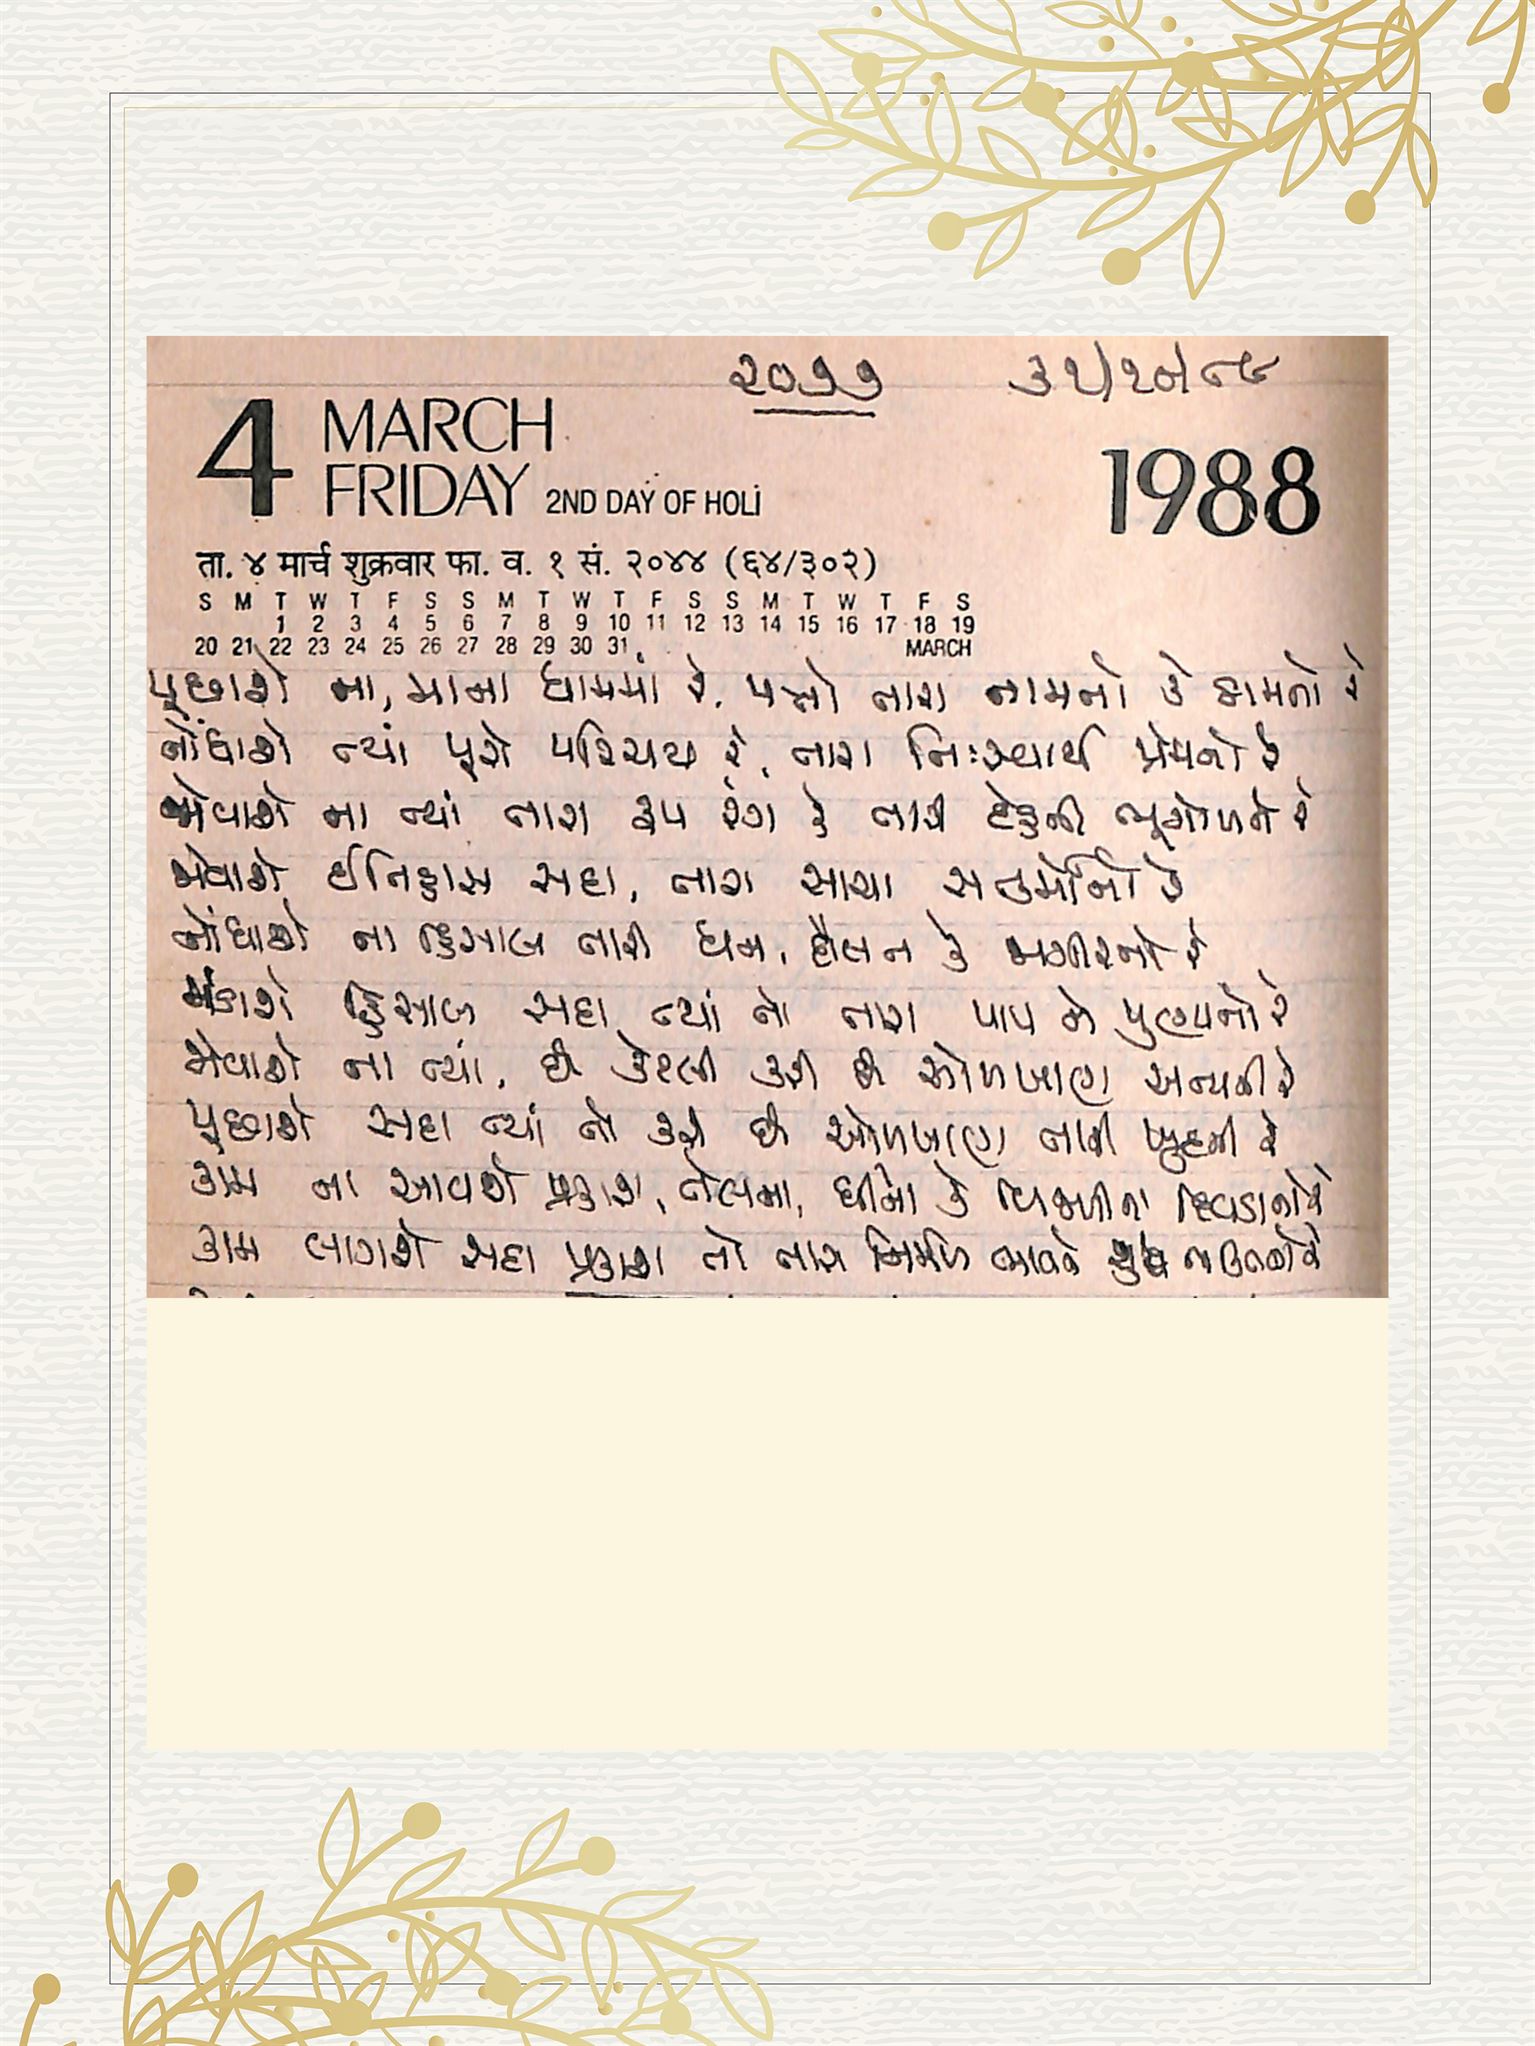 ૨૦૭૭ ૩૧/૧૦/૮૯
4 MARCH
FRIDAY 2ND DAY OF HOLI
1988
ता. ४ मार्च शुक्रवार फा. व. १ सं. २०४४ (६४/३०२)
S M T W T F S S M T W T F S S M T W T F S
1 2 3 4 5 6 7 8 9 10 11 12 13 14 15 16 17 18 19
20 21 22 23 24 25 26 27 28 29 30 31 MARCH
પૂછાશે ના, માના ધામમાં રે, પત્તો તારા નામનો કે કામનો રે
નોંધાશે ત્યાં પૂરો પરિચય રે, તારા નિઃસ્વાર્થ પ્રેમનો રે
જોવાશે ના ત્યાં તારા રૂપ રંગ કે તારી ટેકની ભૂગોળને રે
જોવાશે ઈતિહાસ સદા, તારા સાચા સત્કર્મોનો રે
નોંધાશે ના હિસાબ તારી ધન, દૌલત કે જાગીરનો રે
મંડાશે હિસાબ સદા ત્યાં તો તારા પાપ ને પુણ્યનો રે
જોવાશે ના ત્યાં, છે કેટલી કરી છે ઓળખાણ અન્યની રે
પૂછાશે સદા ત્યાં તો કરી છે ઓળખાણ તારી ખુદની રે
કામ ના આવશે પ્રકાશ, તેલના, ઘીના કે વિજળીના દિવડાનો રે
કામ લાગશે સદા પ્રકાશ તો તારા નિર્મળ ભાવને શુદ્ધ ભક્તિનો રે